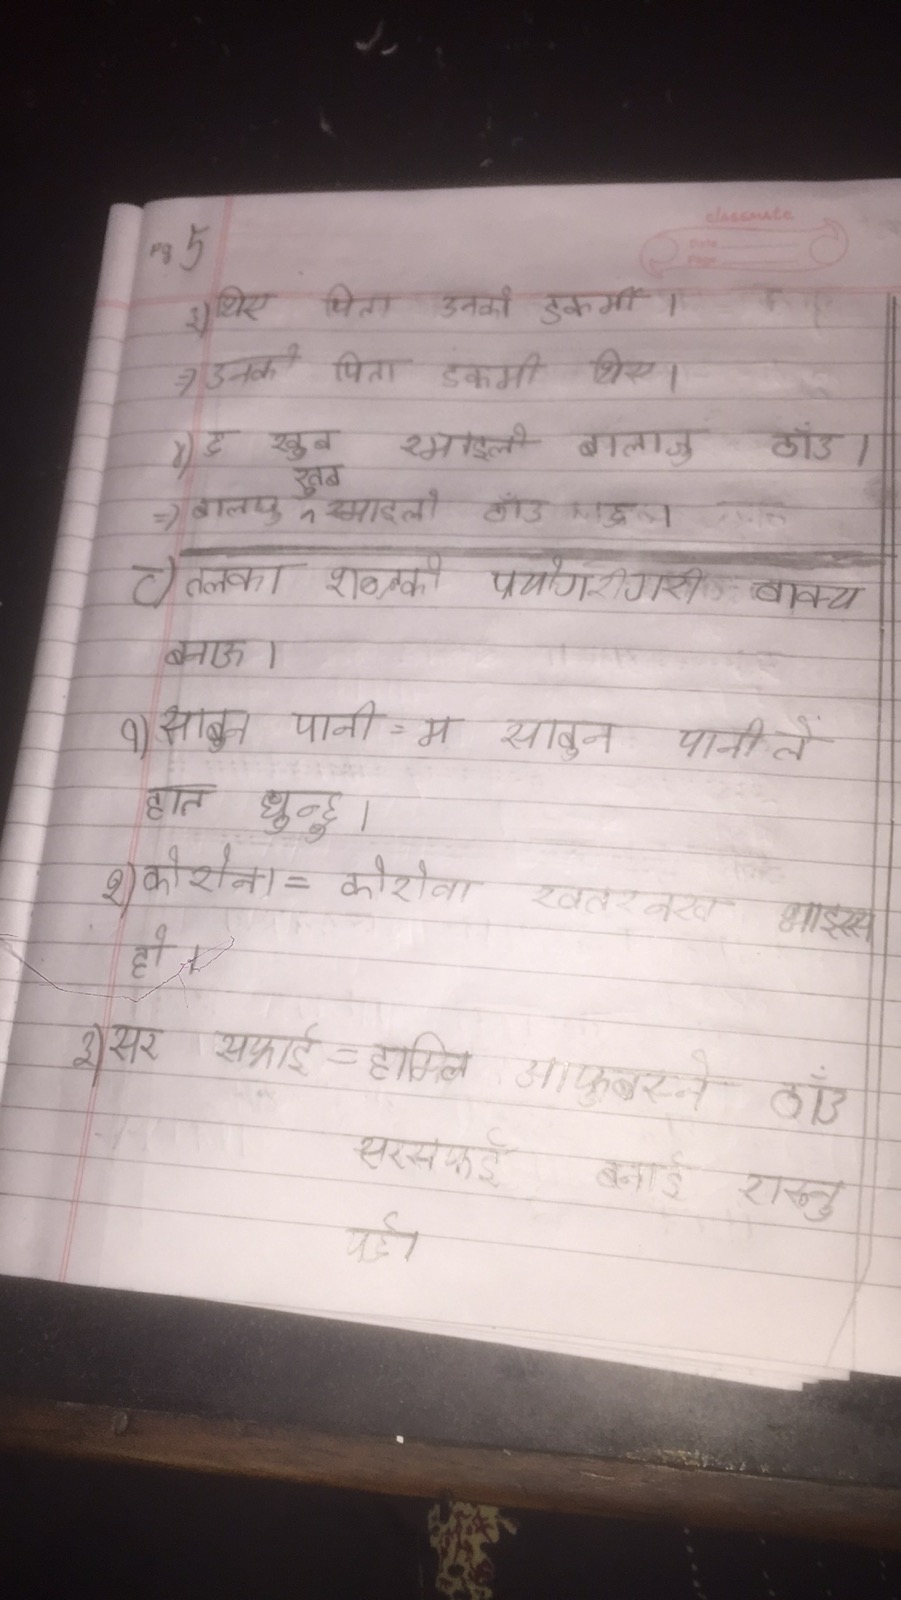 pg 5
classmate
Date
Page
३) थिए पिता उनको डकर्मी ।
=> उनको पिता डकमी थिए ।
४) छ खुब रमाइलो बालाजु ठाँउ ।
खुब
=> बालाजु रमाइलो ठाँउ
८) तलका शब्दको प्रयोगरीगरी वाक्य
बनाऊ ।
१) साबुन पानी = म साबुन पानीले
हात धुन्छु ।
२) कोरोना = कोरोना खतरनख भाइरस
हो ।
३) सर सफाई = हामिले आफुबस्ने ठाँउ
सरसफाई बनाई राख्नु
पर्छ ।